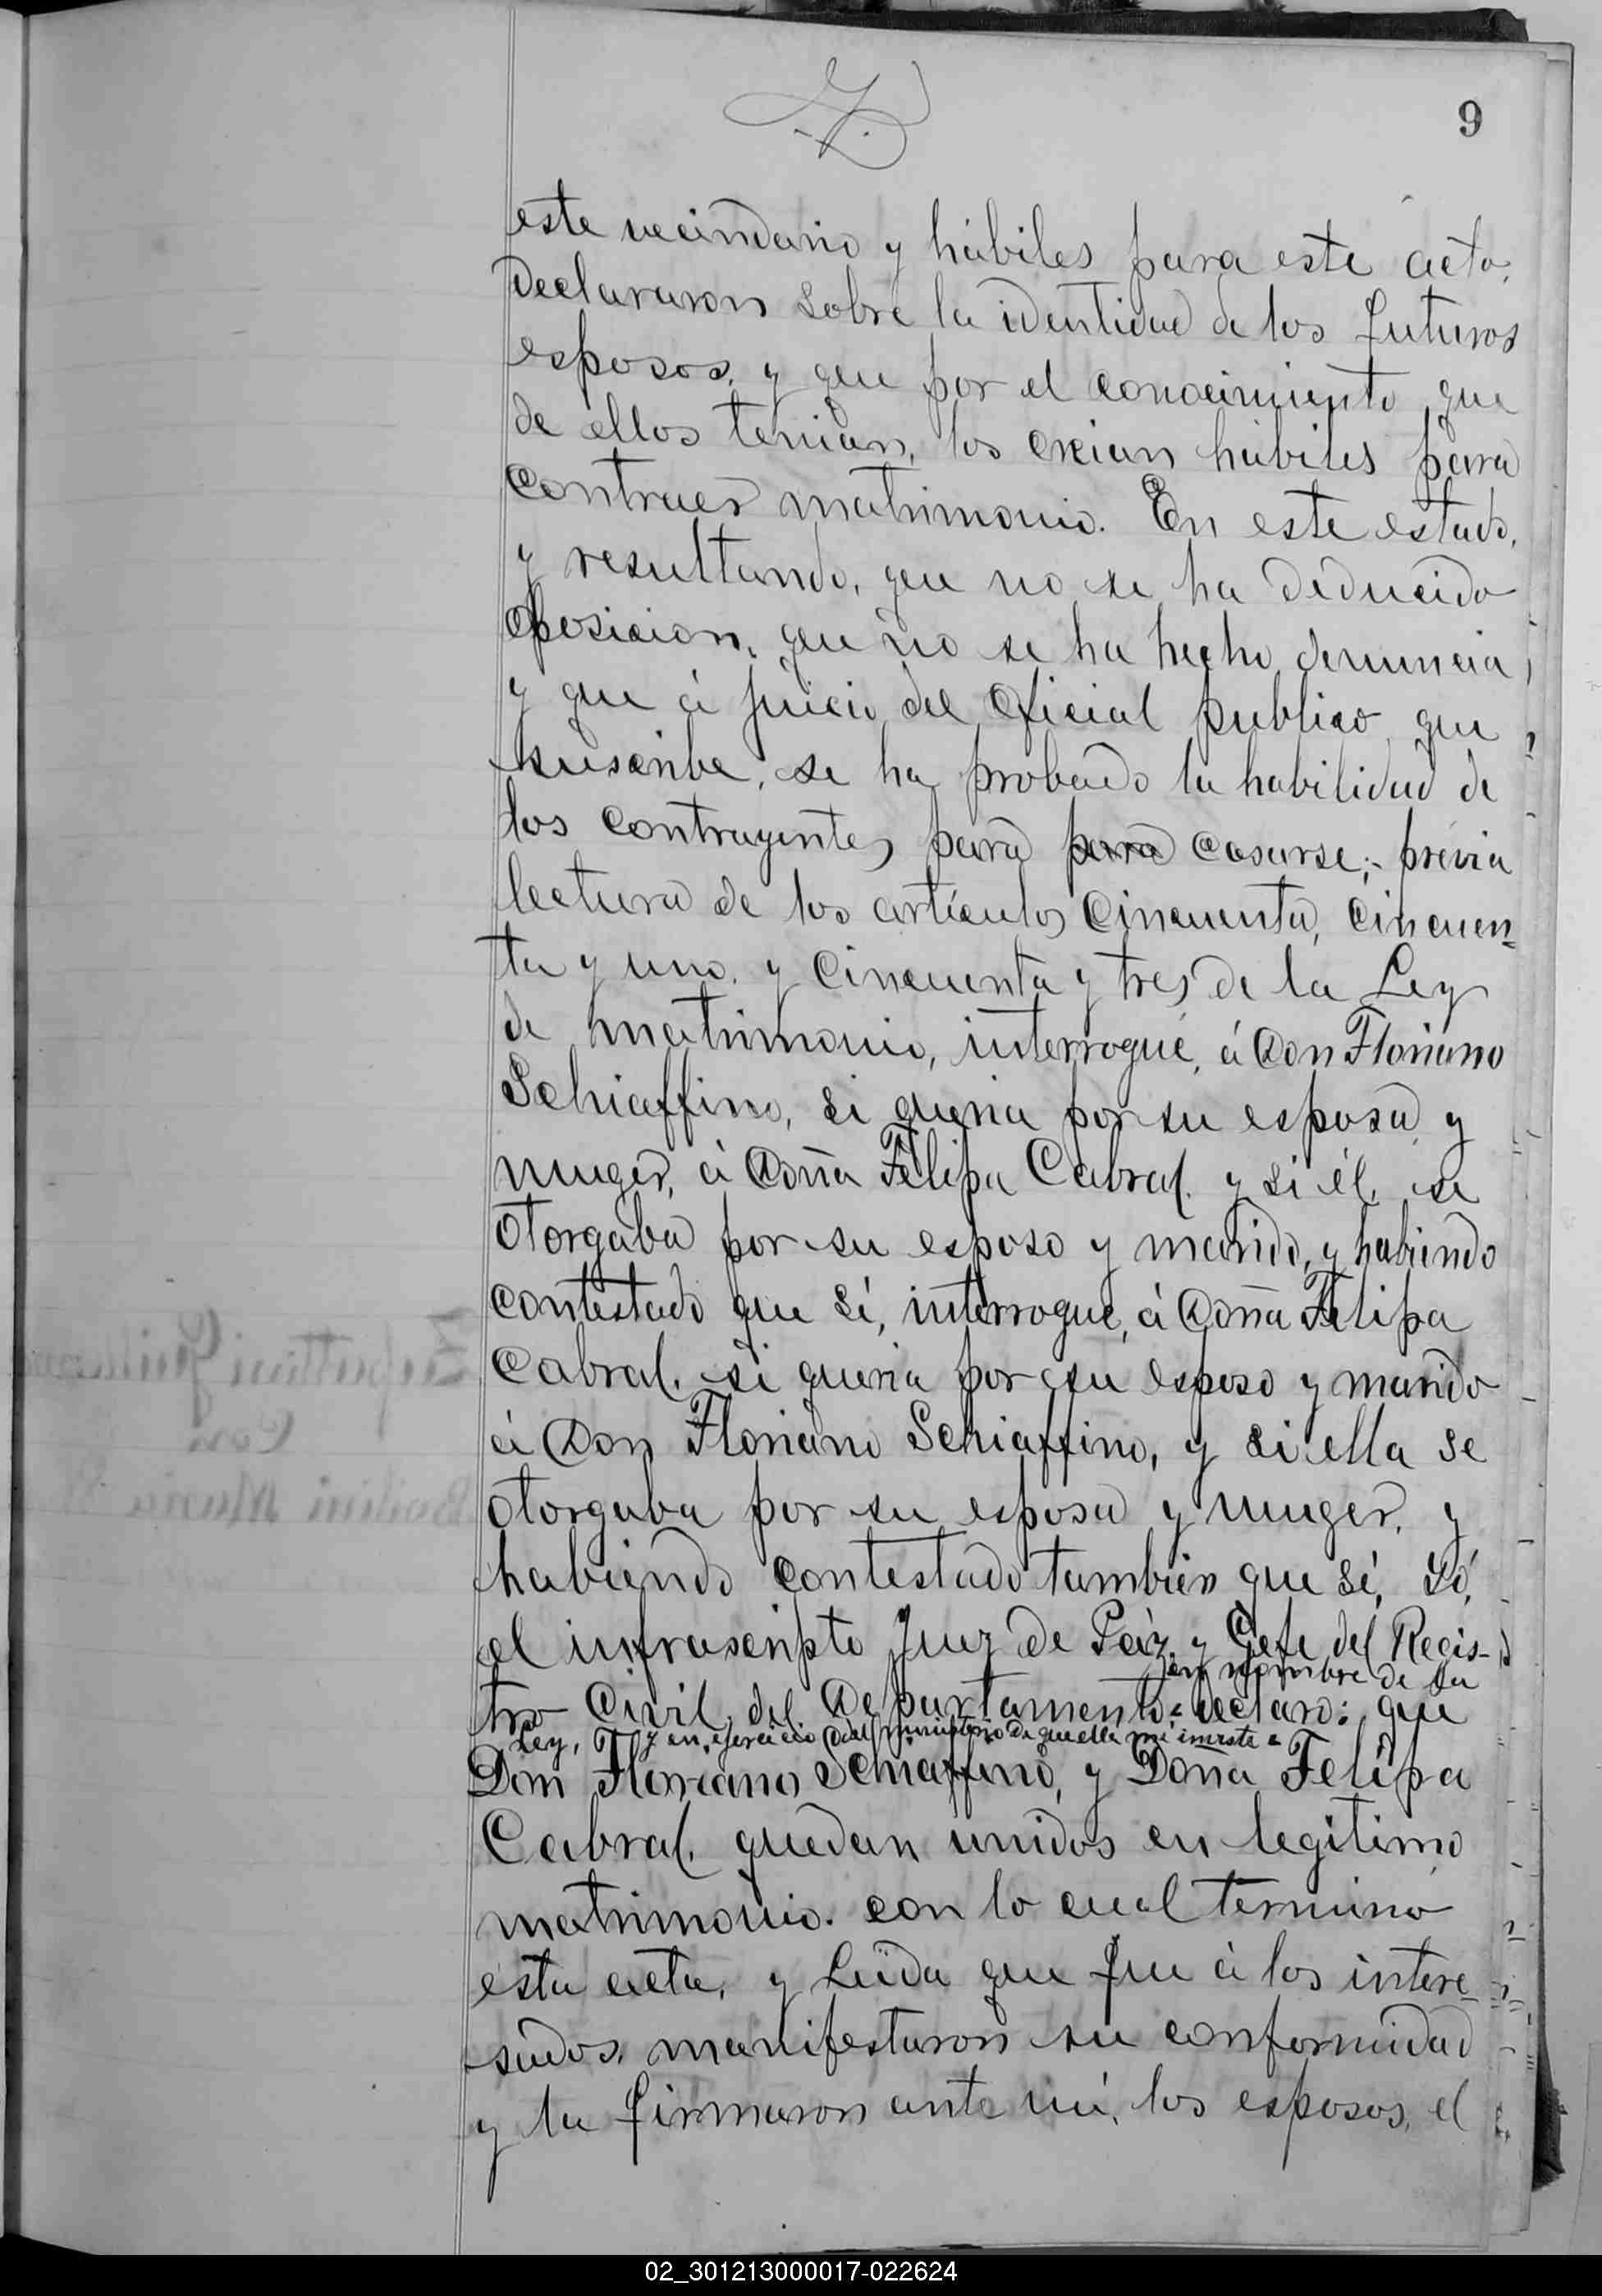 9
este vecindario y hábiles para este acto,
declararon sobre la identidad de los futuros
esposos, y que por el conocimiento que
de ellos tenian, los creian hábiles para
contraer matrimonio. En este estado,
y resultando, que no se ha deducido
oposicion, que no se ha hecho denuncia
y que á juicio del Oficial publico que
suscribe, se ha probado la habilidad de
los contrayentes para para casarse; previa
lectura de los artículos Cincuenta, cincuen-
ta y uno, y Cincuenta y tres de la Ley
de matrimonio, interrogué, á Don Floriano
Schiaffino, si queria por su esposa y
muger, á Doña Felipa Cabral, y si él, se
otorgaba por su esposo y marido, y habiendo
contestado que sí, interrogué, á Doña Felipa
Cabral, si queria por su esposo y marido
á Don Floriano Schiaffino, y si ella se
otorgaba por su esposa y muger, y
habiendo contestado tambien que sí, Yó,
el infrascripto Juez de Paz y Gefe del Regis-
en nombre de la
tro Civil del Departamento = declaro: que
Ley, y en ejercicio del ministerio de que ella me inviste =
Don Floriano Schiaffino, y Doña Felipa
Cabral, quedan unidos en legitimo
matrimonio. con lo cual terminó
esta acta, y Leida que fue á los intere-
sados, manifestaron su conformidad
y la firmaron ante mí, los esposos, el
02_301213000017-022624